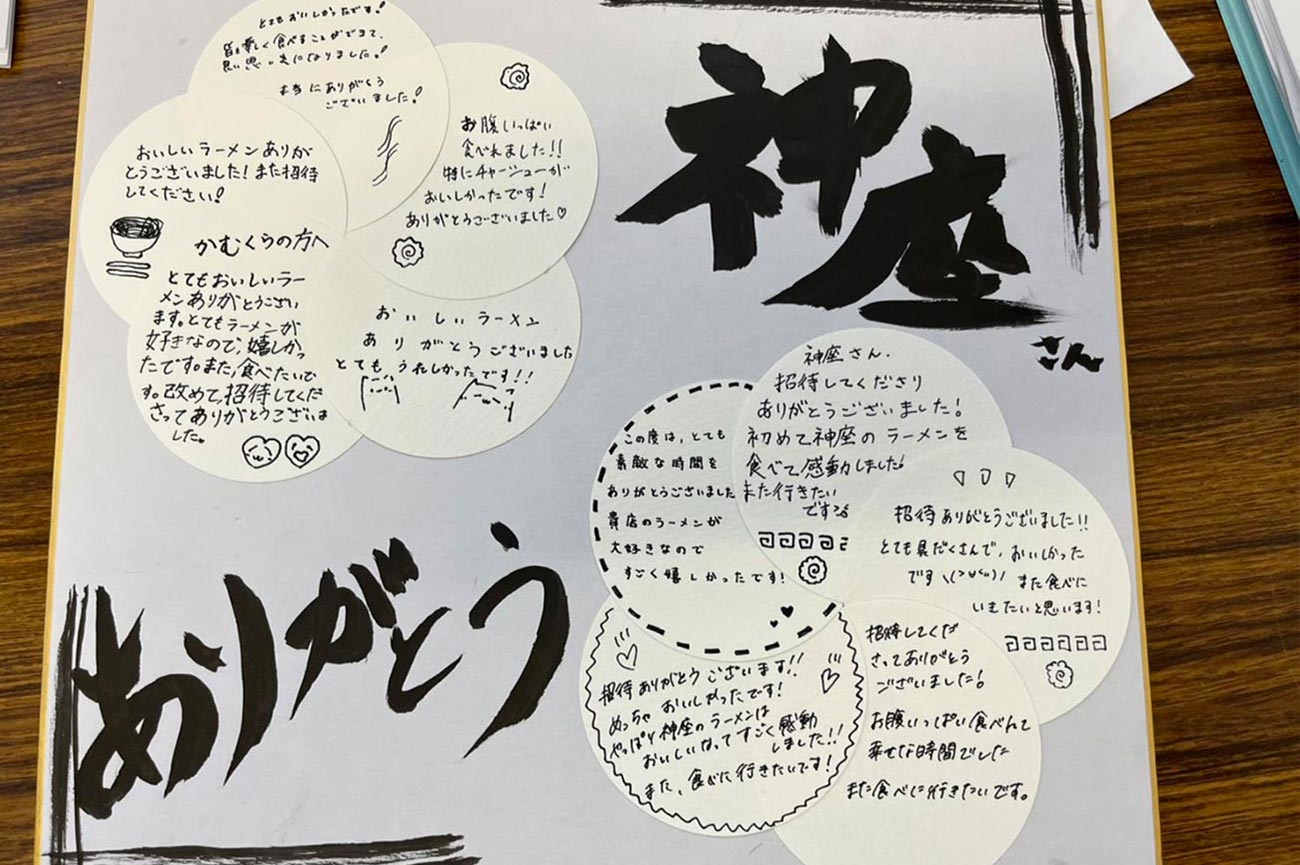 神座
さん
とてもおいしかったです!
皆と楽しく食べることができて、
良い思い出になりました!
本当にありがとう
ございました!
お腹いっぱい
食べれました!!
特にチャーシューが
おいしかったです!
ありがとうございました♡
おいしいラーメンありが
とうございました!また招待
してください!
かむくらの方へ
とてもおいしいラー
メンありがとうござい
ます。とてもラーメンが
好きなので、嬉しかっ
たです。また、食べたいで
す。改めて、招待してくだ
さってありがとうございま
した。
おいしいラーメン
ありがとうございました
とても、うれしかったです!!
神座さん、
招待してくださり
ありがとうございました!
初めて神座のラーメンを
食べて感動しました!
また行きたい
です
この度は、とても
素敵な時間を
ありがとうございました
貴店のラーメンが
大好きなので
すごく嬉しかったです!
招待ありがとうございました!!
とても具だくさんで、おいしかった
です\(>∀<)/また食べに
いきたいと思います!
招待ありがとうございます!!
めっちゃおいしかったです!
やっぱり神座のラーメンは
おいしいなってすごく感動
しました!!
また、食べに行きたいです!
招待してくだ
さってありがとう
ございました!
お腹いっぱい食べれて
幸せな時間でした
また食べに行きたいです。
ありがとう